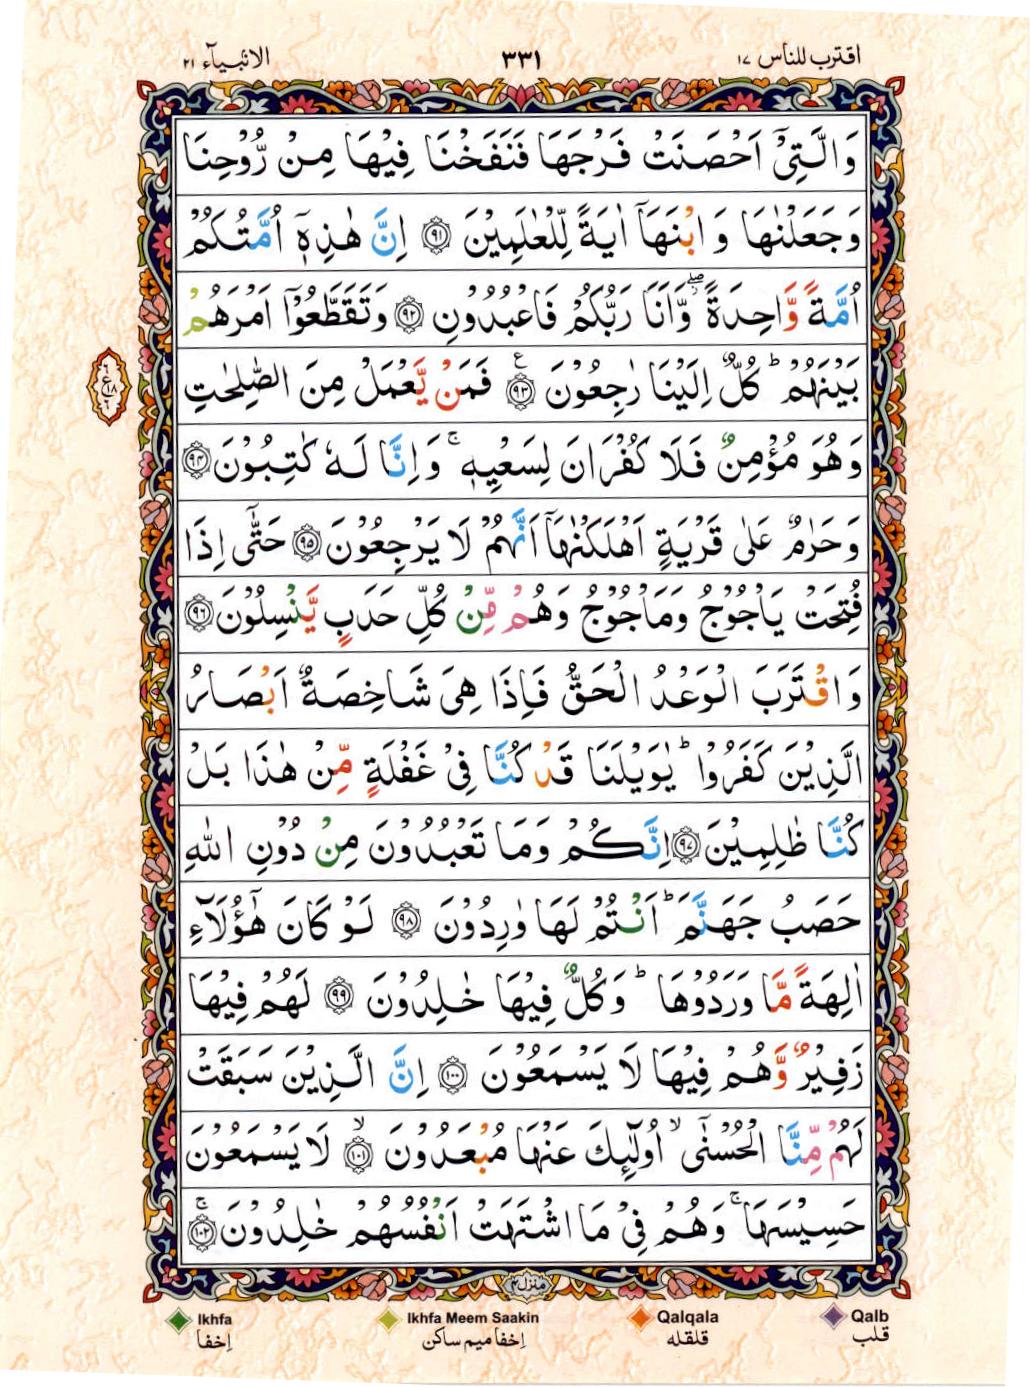 اقترب للناس ١٧
٣٣١
الانبیآء ٢١
وَالَّتِیْۤ اَحْصَنَتْ فَرْجَهَا فَنَفَخْنَا فِیْهَا مِنْ رُّوْحِنَا
وَجَعَلْنٰهَا وَابْنَهَاۤ اٰیَةً لِّلْعٰلَمِیْنَ ﴿٩١﴾ اِنَّ هٰذِهٖۤ اُمَّتُكُمْ
اُمَّةً وَّاحِدَةً ۖؗ وَّاَنَا رَبُّكُمْ فَاعْبُدُوْنِ ﴿٩٢﴾ وَتَقَطَّعُوْۤا اَمْرَهُمْ
بَیْنَهُمْ ؕ كُلٌّ اِلَیْنَا رٰجِعُوْنَ ﴿٩٣﴾ ع فَمَنْ یَّعْمَلْ مِنَ الصّٰلِحٰتِ
٦ ع ١٨ ٦
وَهُوَ مُؤْمِنٌ فَلَا كُفْرَانَ لِسَعْیِهٖ ۚ وَاِنَّا لَهٗ كٰتِبُوْنَ ﴿٩٤﴾
وَحَرٰمٌ عَلٰی قَرْیَةٍ اَهْلَكْنٰهَاۤ اَنَّهُمْ لَا یَرْجِعُوْنَ ﴿٩٥﴾ حَتّٰۤی اِذَا
فُتِحَتْ یَاْجُوْجُ وَمَاْجُوْجُ وَهُمْ مِّنْ كُلِّ حَدَبٍ یَّنْسِلُوْنَ ﴿٩٦﴾
وَاقْتَرَبَ الْوَعْدُ الْحَقُّ فَاِذَا هِیَ شَاخِصَةٌ اَبْصَارُ
الَّذِیْنَ كَفَرُوْا ؕ یٰوَیْلَنَا قَدْ كُنَّا فِیْ غَفْلَةٍ مِّنْ هٰذَا بَلْ
كُنَّا ظٰلِمِیْنَ ﴿٩٧﴾ اِنَّكُمْ وَمَا تَعْبُدُوْنَ مِنْ دُوْنِ اللّٰهِ
حَصَبُ جَهَنَّمَ ؕ اَنْتُمْ لَهَا وٰرِدُوْنَ ﴿٩٨﴾ لَوْ كَانَ هٰۤؤُلَآءِ
اٰلِهَةً مَّا وَرَدُوْهَا ؕ وَكُلٌّ فِیْهَا خٰلِدُوْنَ ﴿٩٩﴾ لَهُمْ فِیْهَا
زَفِیْرٌ وَّهُمْ فِیْهَا لَا یَسْمَعُوْنَ ﴿١٠٠﴾ اِنَّ الَّذِیْنَ سَبَقَتْ
لَهُمْ مِّنَّا الْحُسْنٰۤی ۙ اُولٰٓئِكَ عَنْهَا مُبْعَدُوْنَ ﴿١٠١﴾ۙ لَا یَسْمَعُوْنَ
حَسِیْسَهَا ۚ وَهُمْ فِیْ مَا اشْتَهَتْ اَنْفُسُهُمْ خٰلِدُوْنَ ﴿١٠٢﴾ۚ
منزل ٤
Ikhfa Ikhfa Meem Saakin Qalqala Qalb
قلب قلقله اِخفا میم ساکن اِخفا